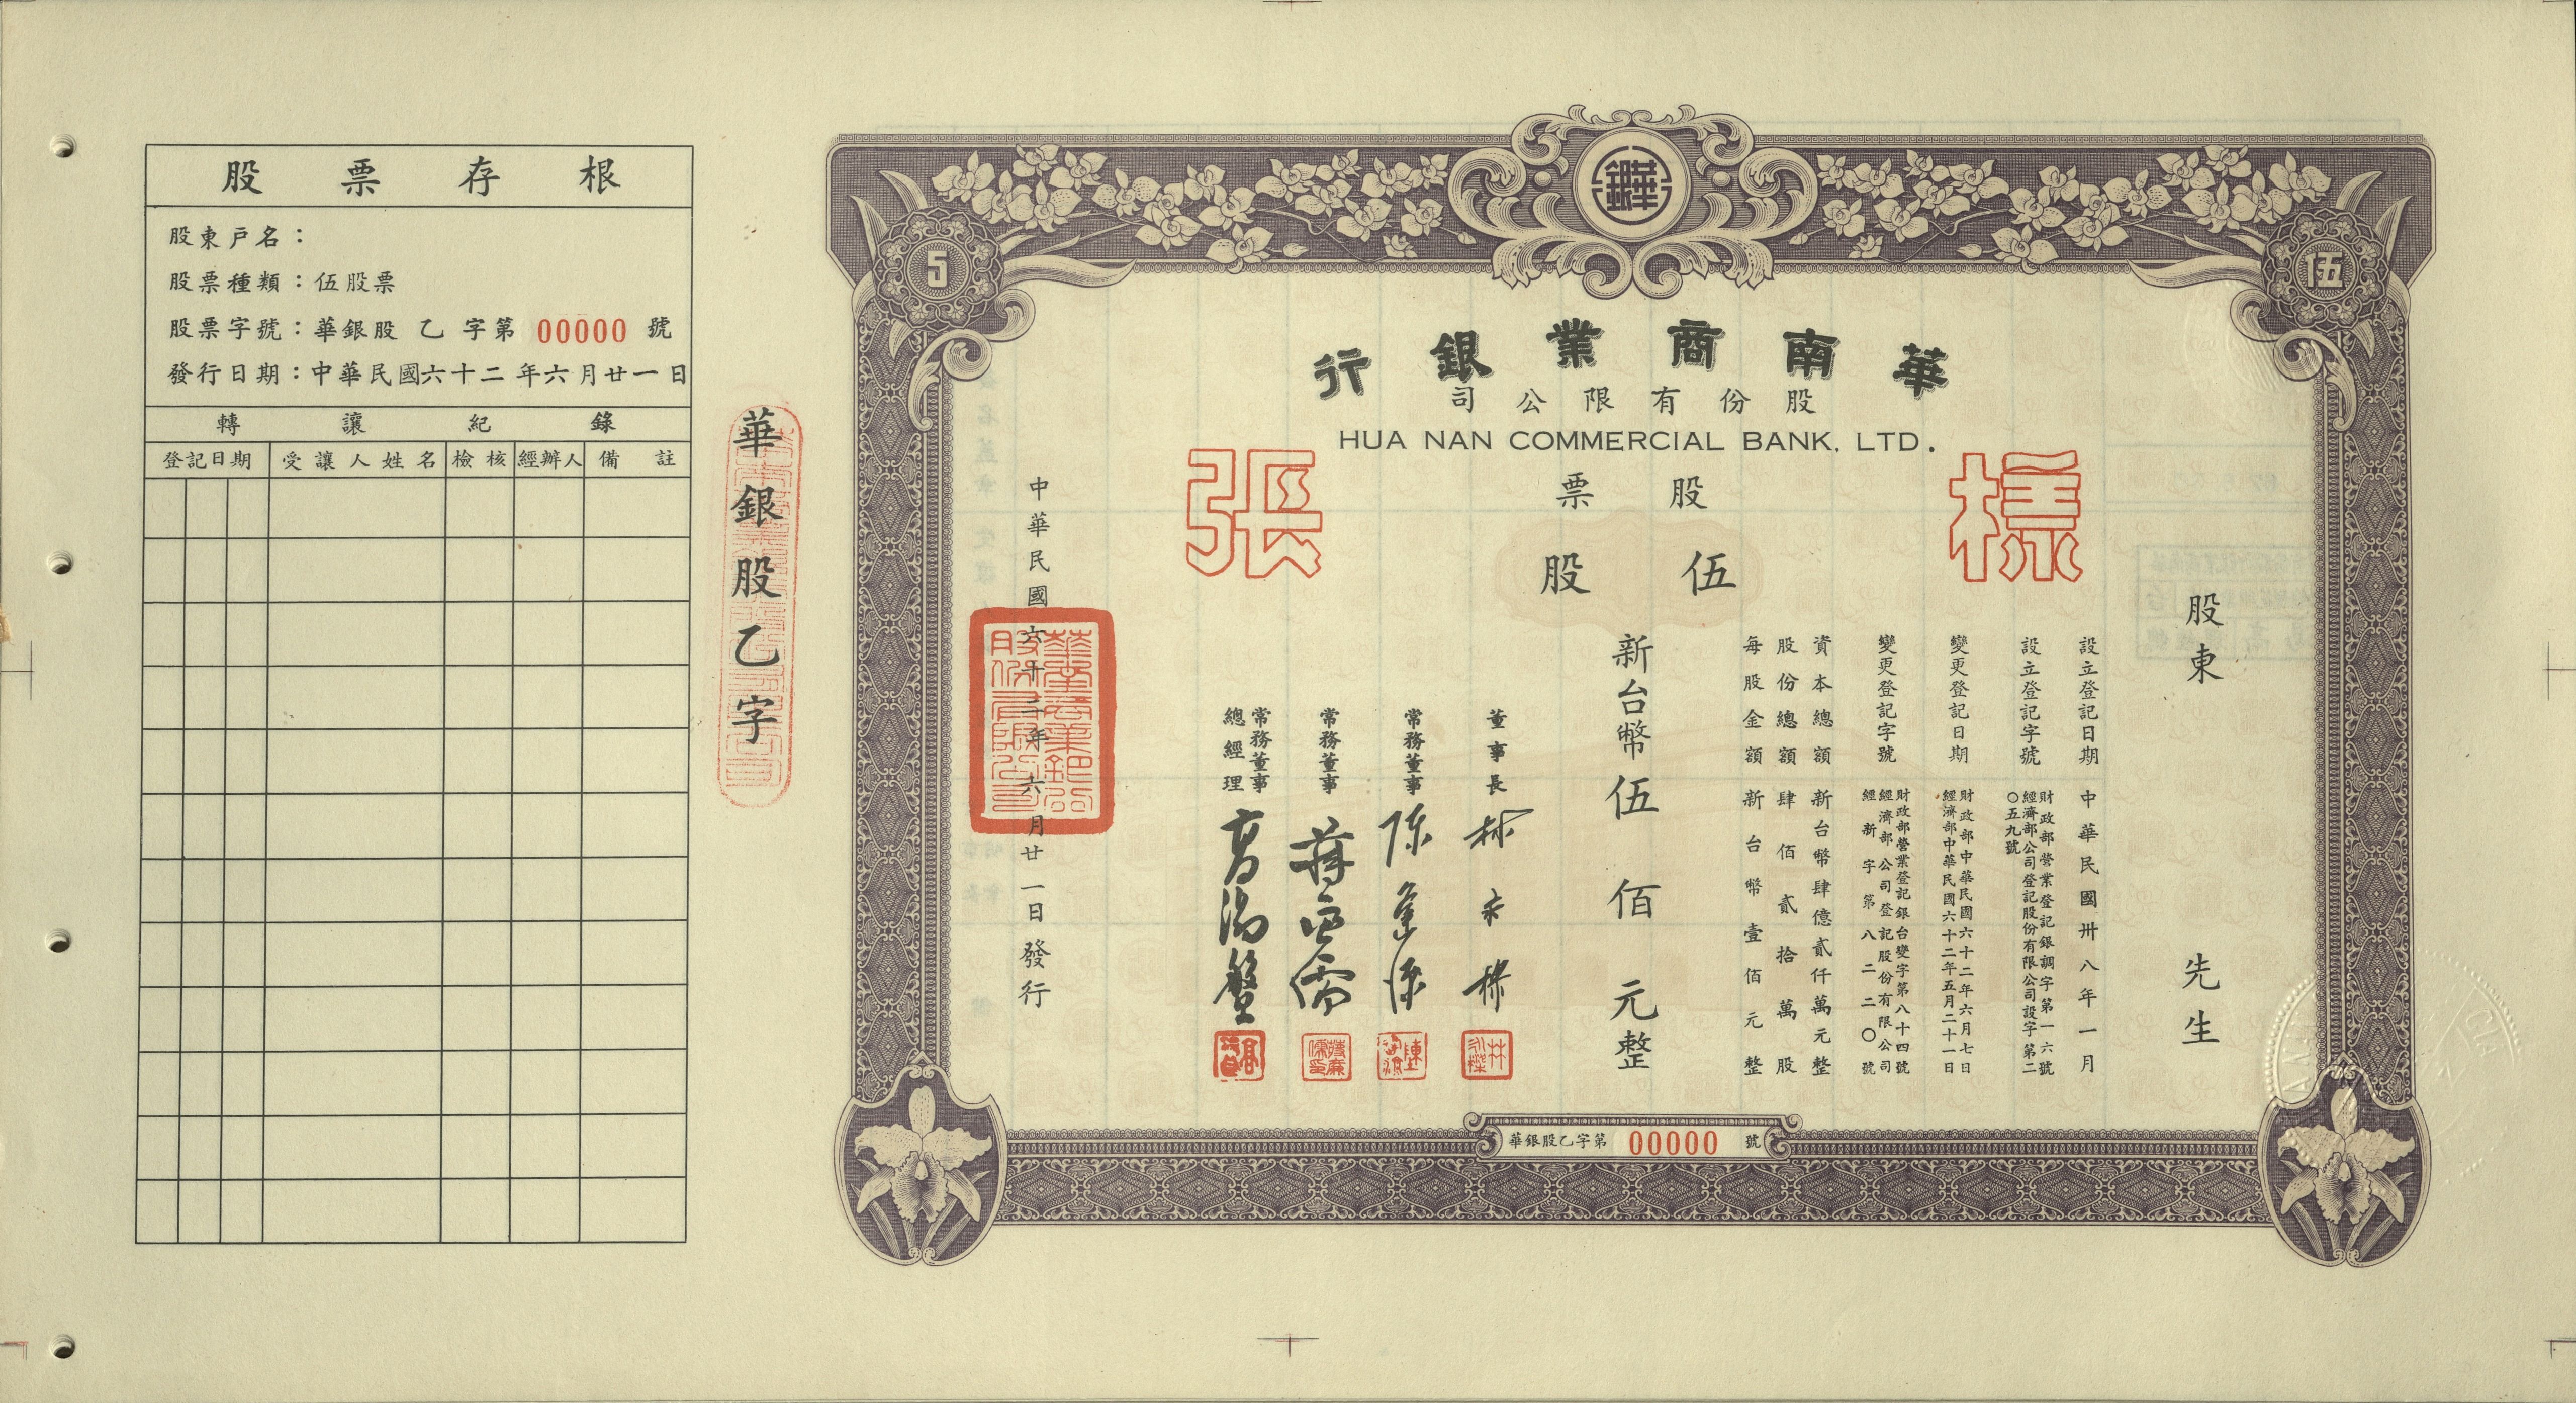 股票存根
股東戶名：
股票種類：伍股票
股票字號：華銀股 乙 字第 00000 號
發行日期：中華民國六十二年六月廿一日
轉讓紀錄
登記日期 受讓人姓名 檢核 經辦人 備註
華銀股乙字
5
華銀
伍
華南商業銀行
股份有限公司
HUA NAN COMMERCIAL BANK, LTD.
樣張
股票
伍股
股東 先生
設立登記日期 中華民國卅八年一月
設立登記字號 財政部營業登記銀調字第一六號
經濟部公司登記股份有限公司設字第二
〇五九號
變更登記日期 財政部中華民國六十二年六月七日
經濟部中華民國六十二年五月二十一日
變更登記字號 財政部營業登記銀台變字第八十四號
經濟部公司登記股份有限公司
經新字第八二二〇號
資本總額 新台幣肆億貳仟萬元整
股份總額 肆佰貳拾萬股
每股金額 新台幣壹佰元整
新台幣伍佰元整
董事長 林永樑
常務董事 陳逢源
常務董事
常務董事
總經理 高湯盤
中華民國六十二年六月廿一日發行
華南商業銀行
股份有限公司
華銀股乙字第 00000 號